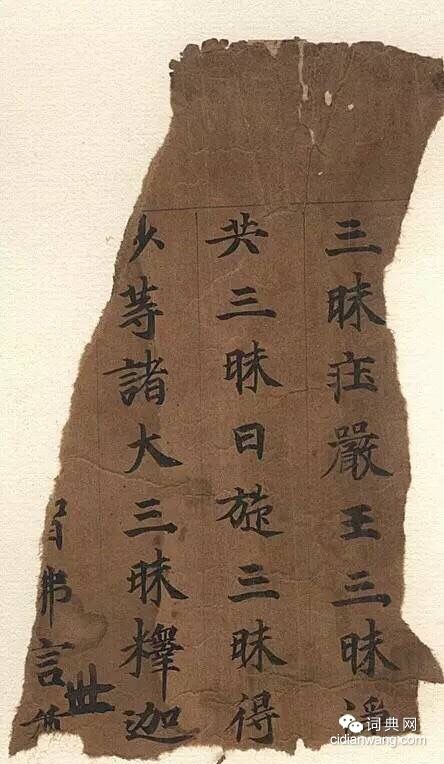 三昧莊嚴王三昧
共三昧日旋三昧得
沙等諸大三昧釋迦
智佛言世
词典网
cidianwang.com